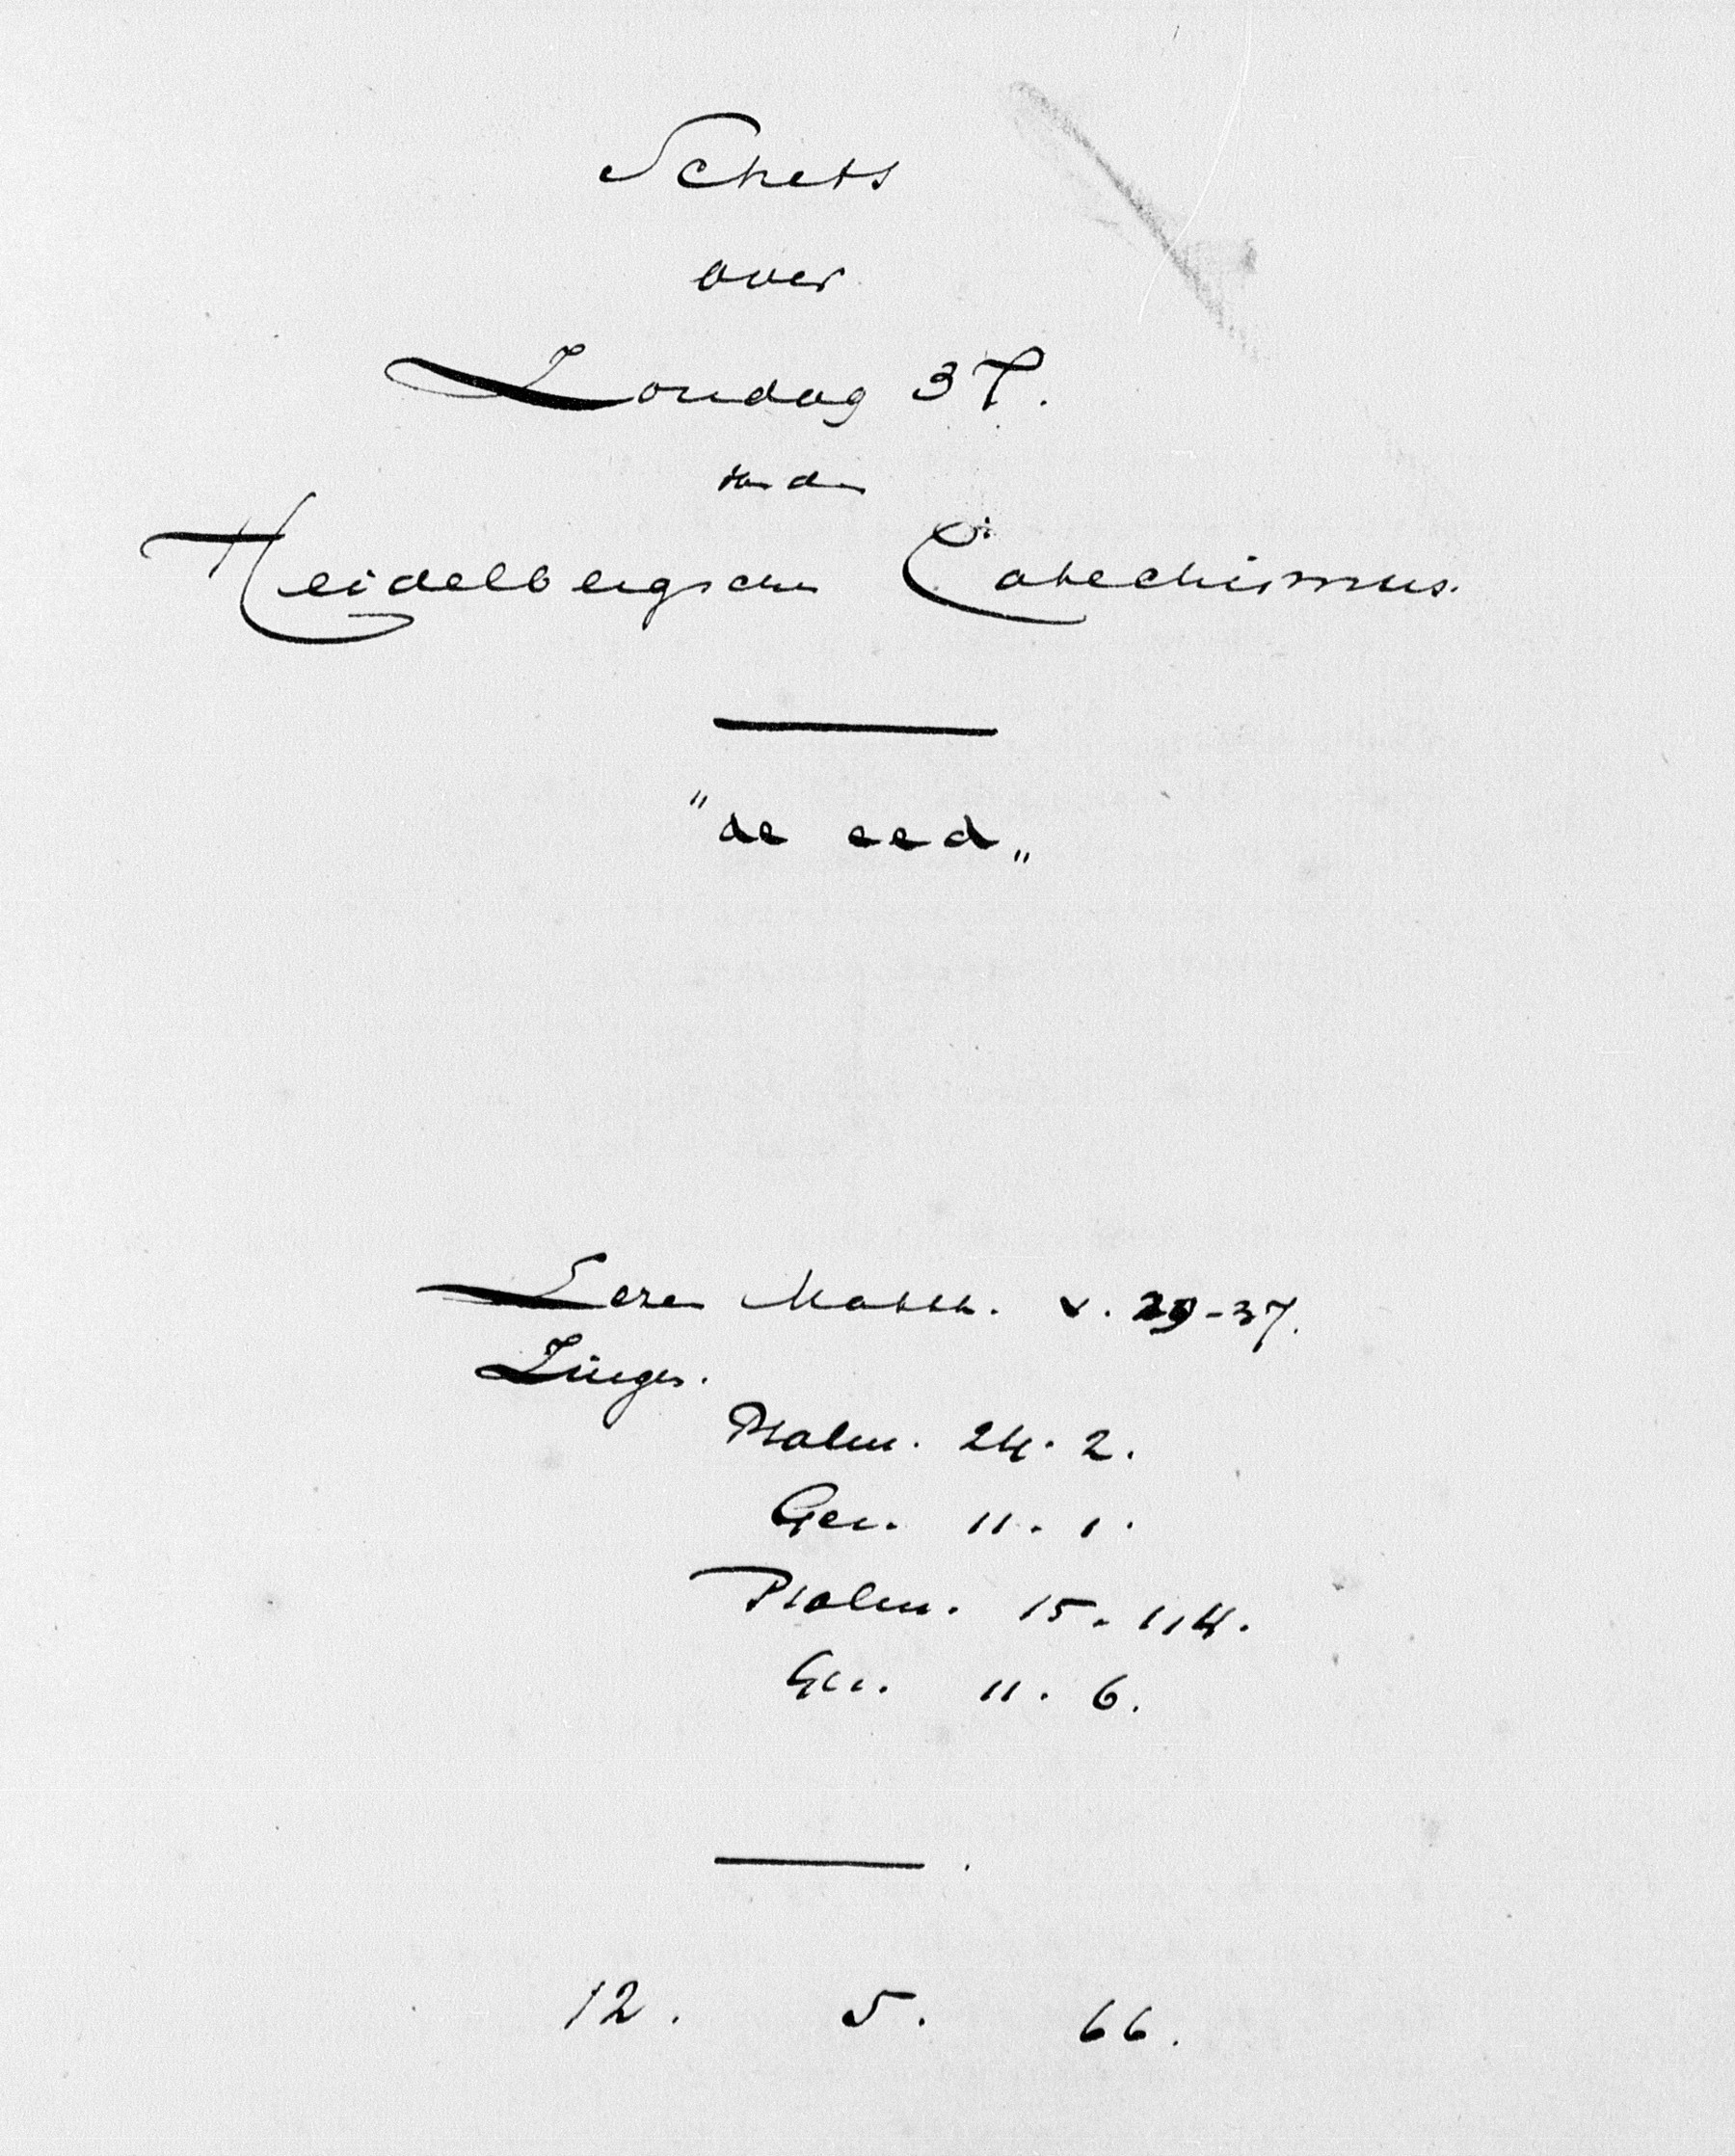 Schets
over
Zondag 37.
van den
Heidelbergschen Catechismus.
"de eed„
Lezen Matth. v. 29-37.
Zingen.
Psalm. 24. 2.
Gez. 11. 1.
Psalm. 15. 1 1 4.
Gez. 11. 6.
12. 5. 66.